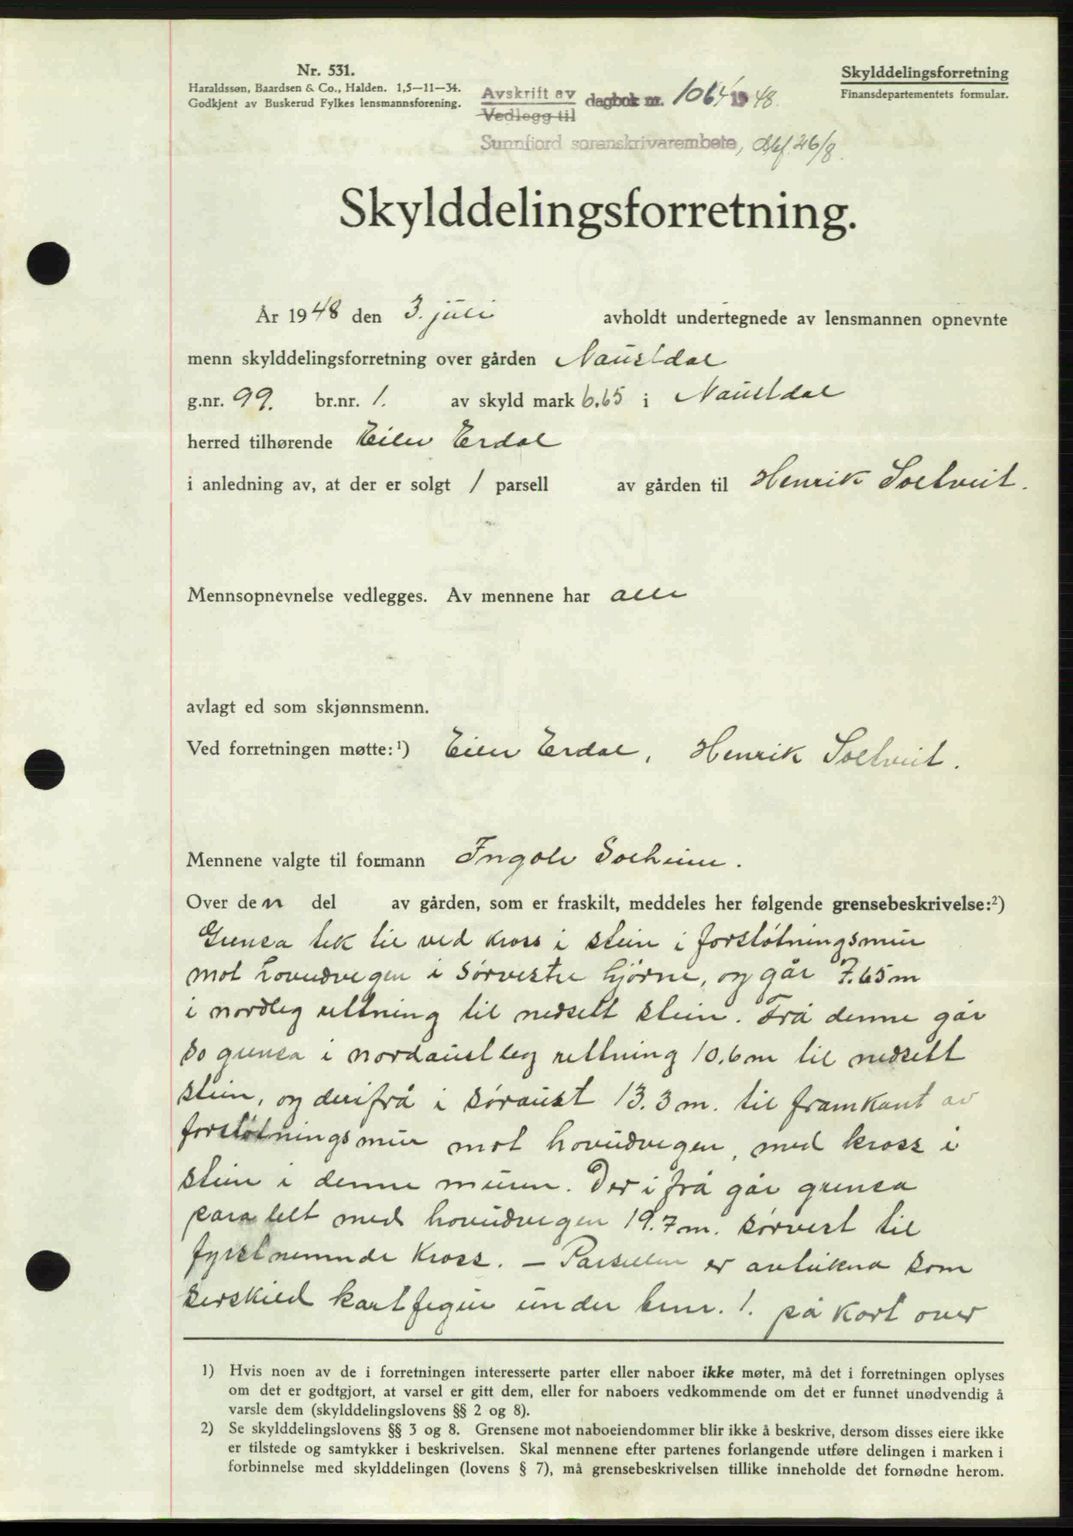 Nr. 531.
Haraldssøn, Baardsen & Co., Halden. 1,5—11—34.
Godkjent av Buskerud Fylkes lensmannsforening.
Skylddelingsforretning
Finansdepartementets formular.
Avskrift av
Vedlegg til
dagbok nr. 1064/1948.
Sunnfjord sorenskrivarembete, 26/8.
Skylddelingsforretning.
År 1948 den 3. juli avholdt undertegnede av lensmannen opnevnte
menn skylddelingsforretning over gården Naustdal
g.nr. 99. br.nr. 1. av skyld mark 6.65 i Naustdal
herred tilhørende Eilev Erdal
i anledning av, at der er solgt 1 parsell av gården til Henrik Soltveit.
Mennsopnevnelse vedlegges. Av mennene har alle
avlagt ed som skjønnsmenn.
Ved forretningen møtte:¹) Eilev Erdal, Henrik Soltveit.
Mennene valgte til formann Ingolv Solheim.
Over den del av gården, som er fraskilt, meddeles her følgende grensebeskrivelse:²)
Grensa tek til ved kross i stein i forstøtningsmur
mot hovudvegen i sørvestre hjørne, og går 7.65 m
i nordleg rettning til nedsett stein. Frå denne går
so grensa i nordaustleg rettning 10.6 m til nedsett
stein, og derifrå i søraust 13.3 m. til framkant av
forstøtningsmur mot hovudvegen, med kross i
stein i denne muren. Der ifrå går grensa
paralelt med hovudvegen 19.7 m. sørvest til
fyrstnemnde kross. — Parsellen er avteikna som
serskild kartfigur under bnr. 1. på kart over
1) Hvis noen av de i forretningen interesserte parter eller naboer ikke møter, må det i forretningen oplyses
om det er godtgjort, at varsel er gitt dem, eller for naboers vedkommende om det er funnet unødvendig å
varsle dem (skylddelingslovens §§ 2 og 8).
2) Se skylddelingslovens §§ 3 og 8. Grensene mot naboeiendommer blir ikke å beskrive, dersom disses eiere ikke
er tilstede og samtykker i beskrivelsen. Skal mennene efter partenes forlangende utføre delingen i marken i
forbinnelse med skylddelingen (lovens § 7), må grensebeskrivelsen tillike inneholde det fornødne herom.